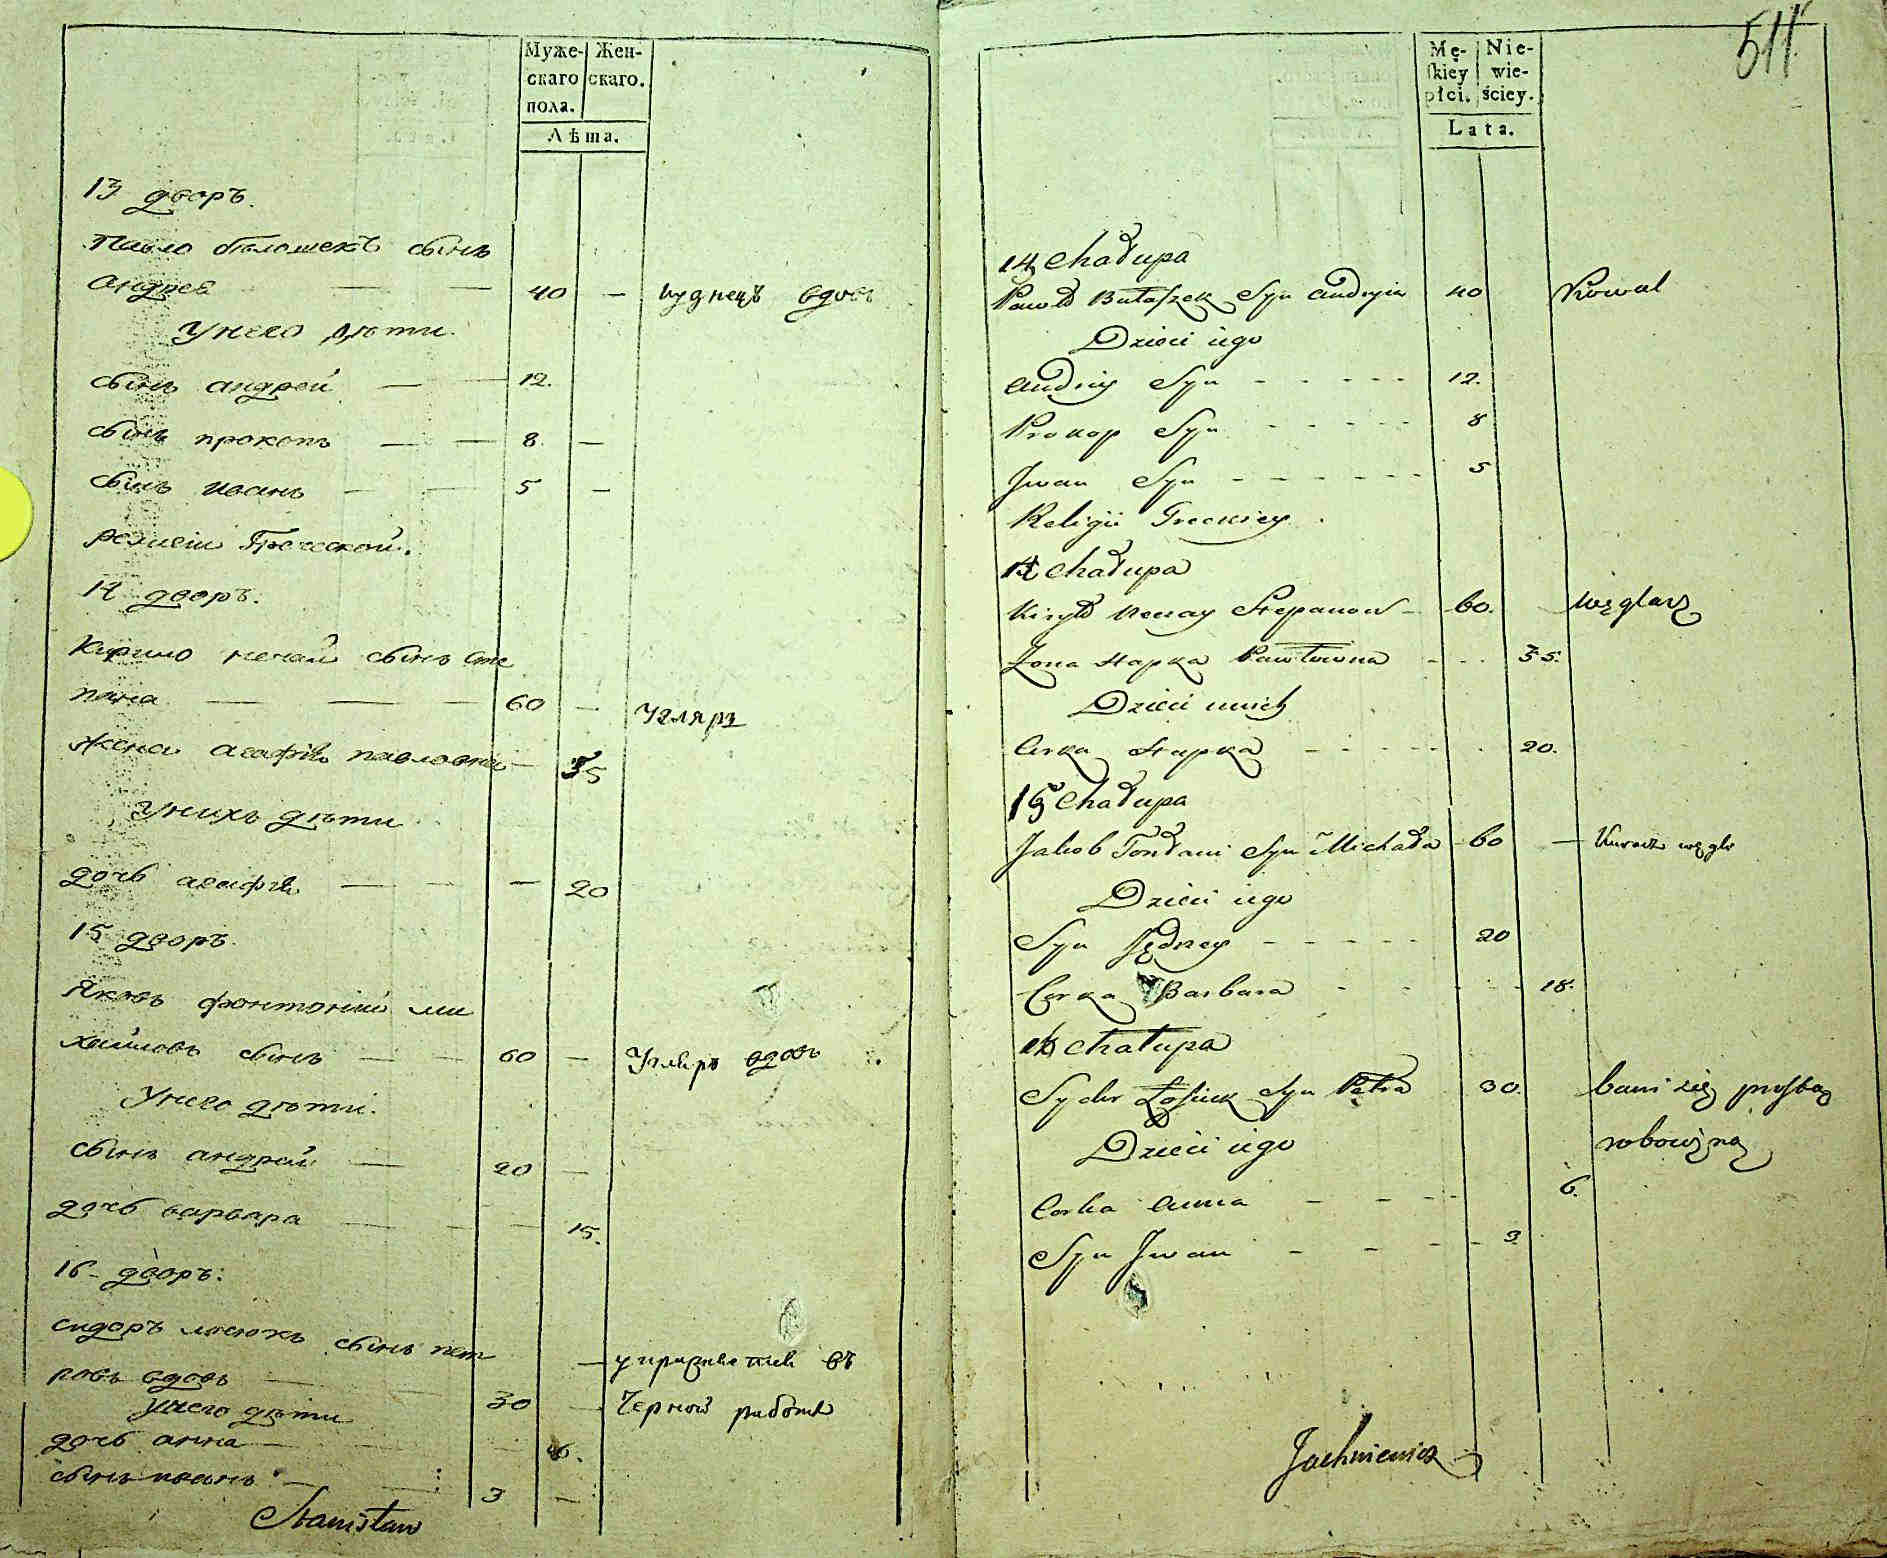 Муже- Жен-
скаго скаго.
пола.
Лѣта.
13 дворъ.
Павло бѣлошекъ сынъ
Андрея — — 40 — кузнецъ вдовъ
У него дѣти
сынъ андрей — — 12.
сынъ прокопъ — — 8 —
сынъ иванъ — — 5 —
религіи Греческой.
14 дворъ.
Кирило ненай сынъ сте
пана — — — 60 — Угляръ
жена агафія павловна — 55
У нихъ дѣти
дочь агафія — — — 20
15 дворъ
Яковъ фонтоній ми
хайловъ сынъ — — 60 — Угляръ вдовъ
У него дѣти.
сынъ андрей — 20 —
дочь варвара — — — 15.
16 дворъ:
сидоръ лосюкъ сынъ пет
ровъ вдовъ — — 30 — упражняется въ
У него дѣти — Черной работе
дочь анна — 6.
сынъ иванъ — 3 —
Stanisław
511
Mę- Nie-
skiey wie-
płci. ściey.
Lata.
14 Chałupa
Paweł Bułaszek Syn Andryia 40 Kowal
Dzieci iego
Andriy Syn - - - - - 12.
Prokop Syn - - - - - 8
Jwan Syn - - - - - - 5
Religii Greckiey.
Chałupa
Kiryło Nenay Stepanow - 60. węglarz
Zona Hapka Pawłowna - - - 55.
Dzieci u nich
Corka Hapka - - - - - - 20.
15 Chałupa
Jakob Fondani Syn Michała 60 — Kurzacz węgli
Dzieci iego
Syn Jędrzey - - - - - 20
Corka Barbara - - - - - 18.
16 Chałupa
Sydor Łosiuk Syn Petra 30. bawi się prostą
Dzieci iego robocizną
Corka Anna - - - - 6.
Syn Jwan - - - - - 3
Jachniewicz